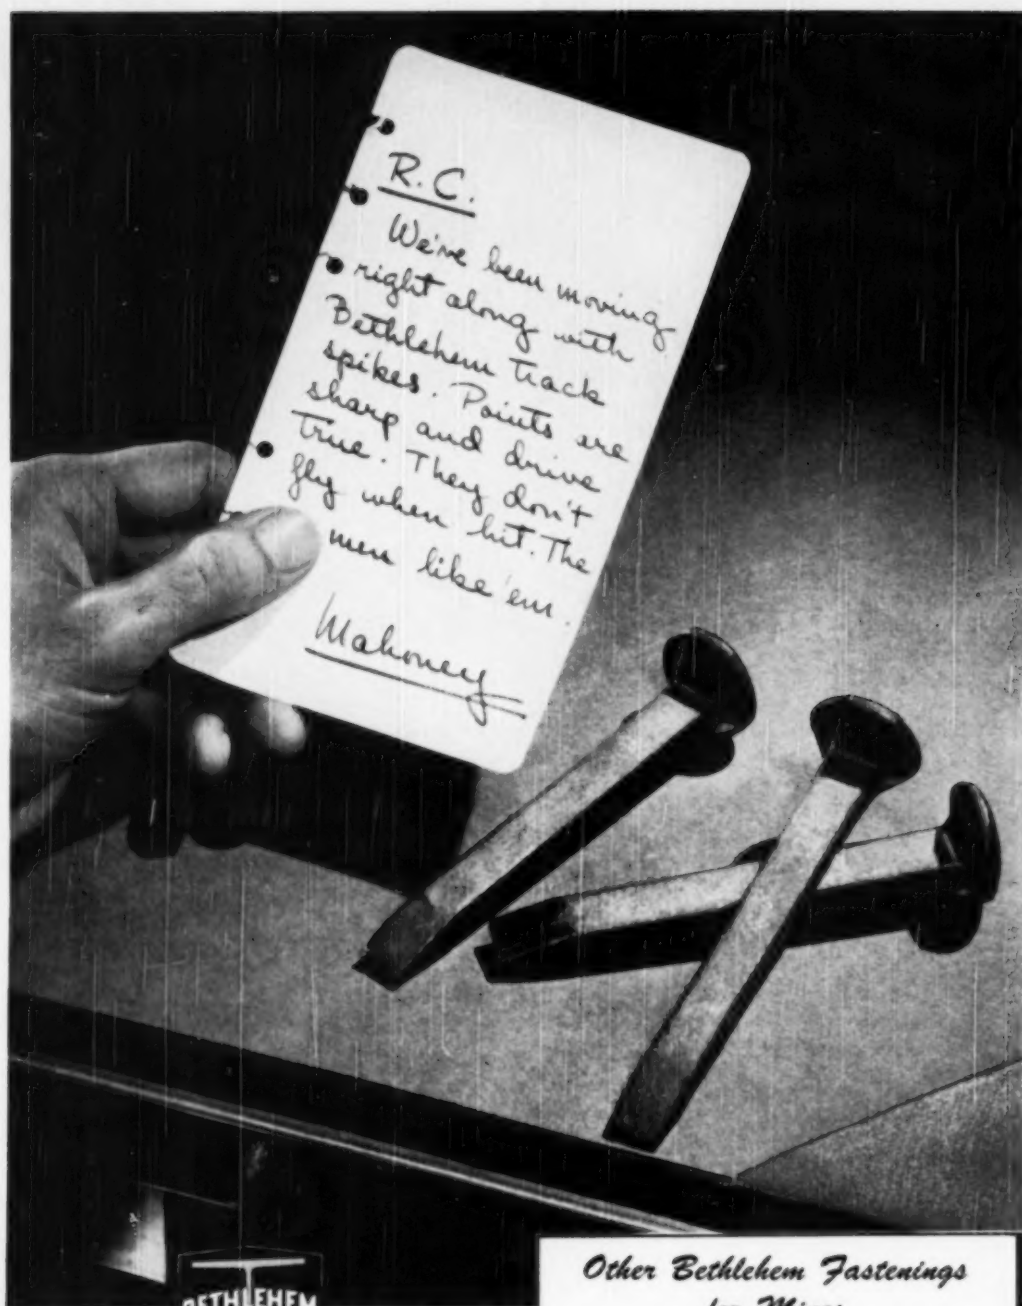 R.C.
We've been moving
right along with
Bethlehem Track
spikes. Points are
sharp and drive
true. They don't
fly when hit. The
men like 'em.
Mahoney
BETHLEHEM
Other Bethlehem Fastenings
for Mines